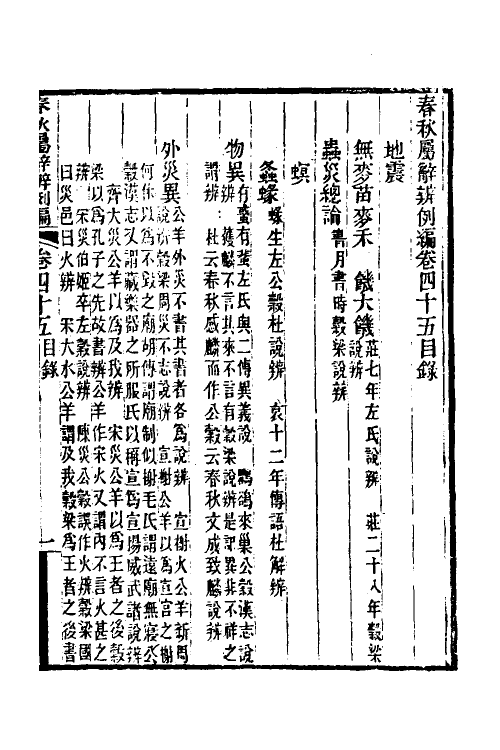 春秋屬辭辨例編卷四十五目錄
地震
無麥苗麥禾 饑大饑莊七年左氏說辨 莊二十八年穀梁
說辨
蟲災總論書月書時穀梁說辨
螟
螽蝝蝝生左公穀杜說辨 哀十二年傳語杜解辨
物異有蜚有蜮左氏與二傳異義說 鸜鵒來巢公穀漢志說
辨 獲麟不言其來不言有穀梁說辨是謂異非不祥之
謂辨 杜云春秋感麟而作公穀云春秋文成致麟說辨
外災異公羊外災不書其書者各為說辨 宣榭火公羊新周
穀梁周災不志說辨 宣榭公羊以為宣宮之榭
何休以為不毀之廟胡傳謂廟制似榭毛氏謂遠廟無寢公
穀漢志又謂藏樂器之所服氏以稱宣為宣揚威武諸說辨
齊大災公羊以為及我辨 宋災公羊以為王者之後穀
梁以為孔子之先故書辨公羊作宋火又謂內不言火甚之
辨 宋災伯姬卒左穀說辨 陳災公穀誤作火辨穀梁國
曰災邑曰火辨 宋大水公羊謂及我穀梁為王者之後書
春秋屬辭辨例編 卷四十五目錄 一